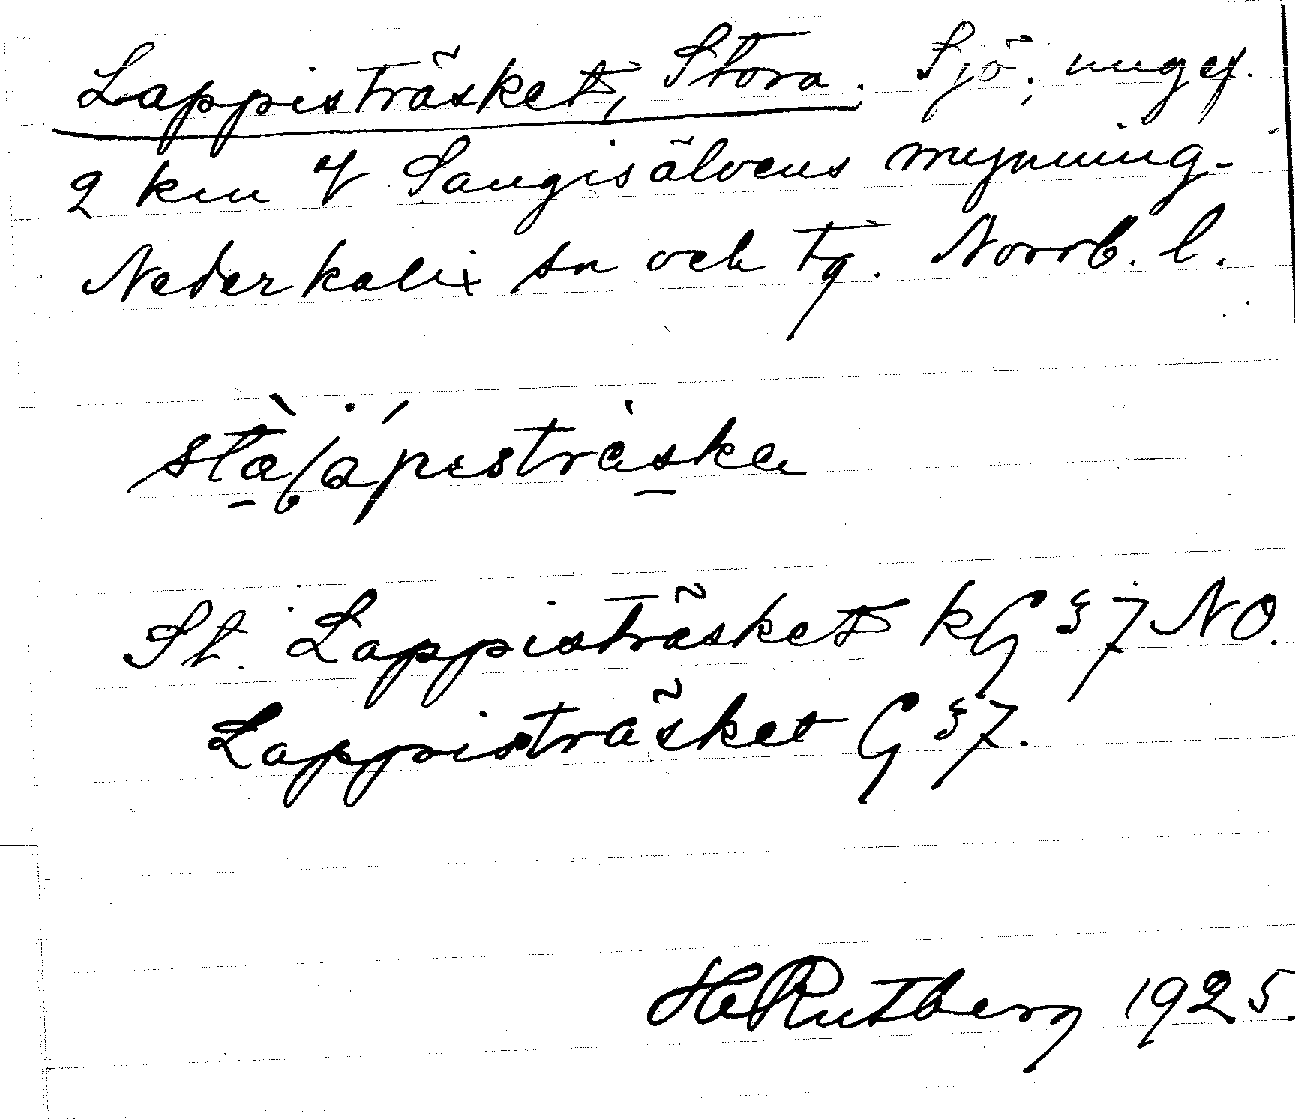 Lappisträsket, Stora. Sjö, ungef.
2 km V Sangisälvens mynning.
Nederkalix sn och tg. Norrb. l.
St. Lappisträsket kG 37 NO.
Lappisträsket G 37.
HRutberg 1925.